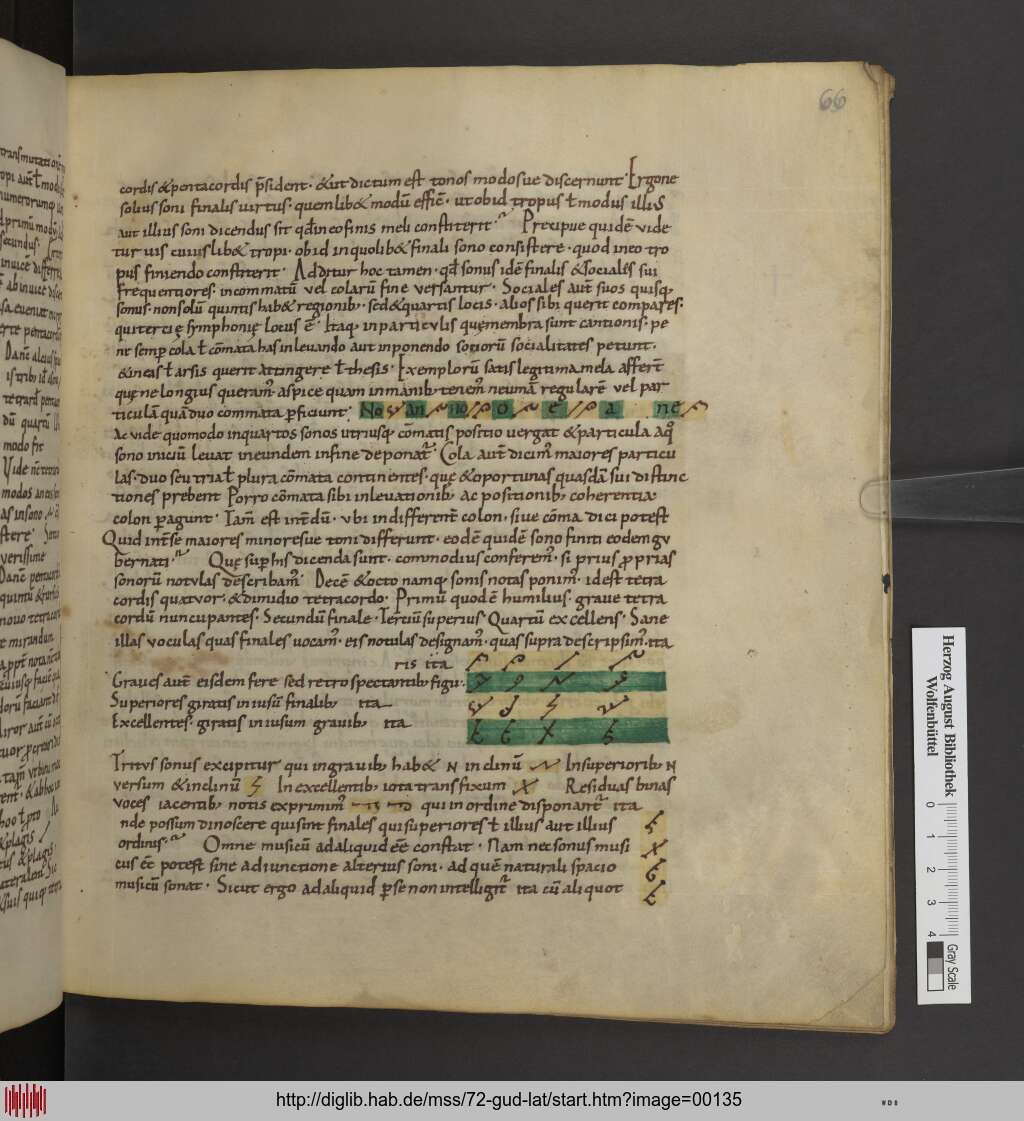 66
cordis &pentacordis p̄sident · &ut dictum est tonos modosue discernunt · Ergone
solius soni finalis uirtus · quemlib& modū efficē · ut ob id tropus ł modus illius
aut illius soni dicendus sit qđ in eo finis meli constiterit · Precipue quidē vide
tur uis cuiuslib& tropi · ob id in quolib& finali sono consistere · quod in eo tro
pus finiendo constiterit · Additur hoc tamen · qđ sonus idē finalis &sociales sui
frequentiores · in commatū vel colarū fine versantur · Sociales aut̄ suos quisq;
sonus · non solū quintis hab& regionib; · sed &quartis locis · alios sibi querit compares ·
qui tercię symphonię locus ē · Itaq; in particulis quę membra sunt cantionis · pe
ne semp cola ł cōmata has in leuando aut in ponendo sociorū socialitates petunt ·
&in eas ł arsis querit attingere ł thesis · Exemplorū satis legitima mela affert̄
quę ne longius queram · aspice quam in manib; tenem neumā regularē vel par
ticulā quā duo commata pficiunt · No an no o e a ne
Ac vide quomodo in quartos sonos utriusq; cōmatis positio uergat &particula a q̊
sono iniciū leuat in eundem in fine deponat · Cola aut̄ dicim maiores particu
las · duo seu tria ł plura cōmata continentes · quę &oportunas quasdā sui distinc
tiones prebent Porro cōmata sibi in leuationib; ac positionib; coherentia
colon pagunt · Tam est int̄dū · ubi indifferent̄ colon · siue cōma dici potest
Quid int̄ se maiores minoresue toni differunt · eodē quidē sono finiti eodem gu
bernati · Quę sup his dicenda sunt · commodius conferem · si prius proprias
sonorū notulas describam · Decē &octo namq; sonis notas ponim · id est tetra
cordis quatuor · &dimidio tetracordo · Primū quod ē humilius · graue tetra
cordū nuncupantes · Secundū finale · Tertiū superius · Quartū excellens · Sane
illas voculas quas finales uocam · eis notulas designam · quas supra descripsim · ita
ris ita
Graues aut̄ eisdem fere sed retro spectantib; figu ·
Superiores giratis in iusū finalib; ita
Excellentes · giratis in iusum grauib; ita
Tritus sonus excipitur qui in grauib; hab& N inclinū In superiorib; N
versum &inclinū In excellentib; iota transfixum Residuas binas
voces iacentib; notis exprimim qui in ordine disponant ita
nde possum dinoscere qui sint finales qui superiores ł illius aut illius
ordinis · Omne musicū ad aliquid ēē constat · Nam nec sonus musi
cus ēē potest sine adiunctione alterius soni · ad quē naturali spacio
musicū sonat · Sicut ergo ad aliquid p se non intelligit̄ ita cū aliquot
Herzog August Bibliothek
Wolfenbüttel
0 1 2 3 4
Gray Scale
http://diglib.hab.de/mss/72-gud-lat/start.htm?image=00135